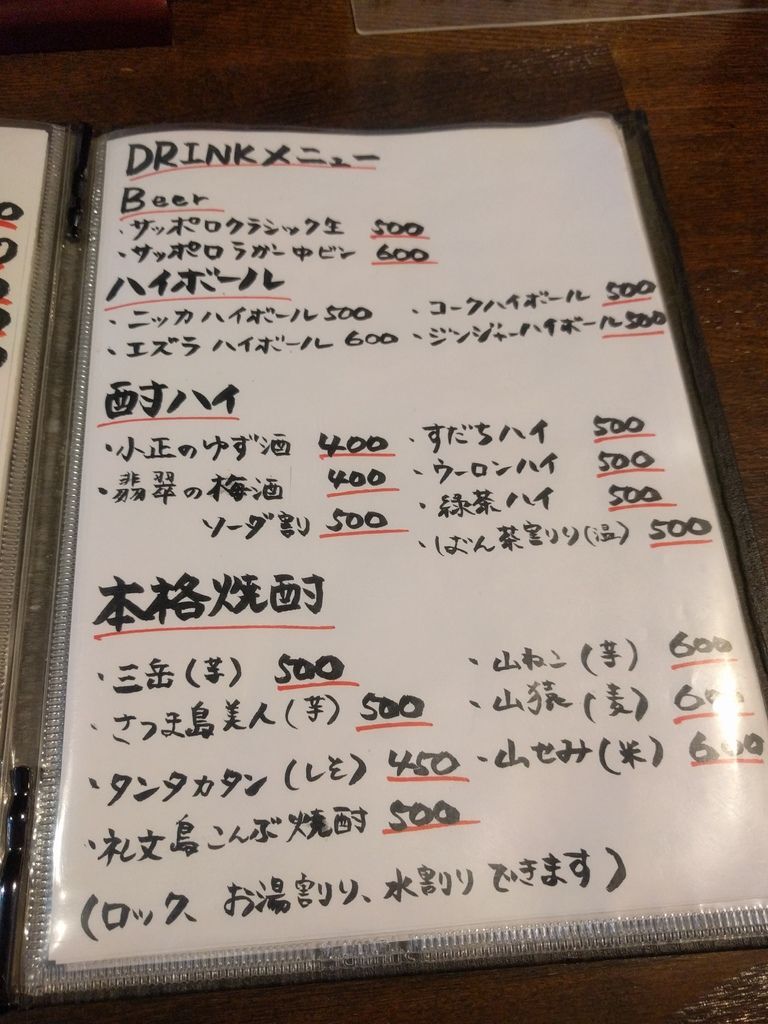 DRINKメニュー
Beer
・サッポロクラシック生 500
・サッポロラガー中ビン 600
ハイボール
・ニッカハイボール 500
・エズラハイボール 600
・コークハイボール 500
・ジンジャーハイボール 500
酎ハイ
・小正のゆず酒 400
・翡翠の梅酒 400
ソーダ割り 500
・すだちハイ 500
・ウーロンハイ 500
・緑茶ハイ 500
・ばん茶割り(温) 500
本格焼酎
・三岳(芋) 500
・さつま島美人(芋) 500
・タンタカタン(しそ) 450
・礼文島こんぶ焼酎 500
・山ねこ(芋) 600
・山猿(麦) 600
・山せみ(米) 600
(ロック、お湯割り、水割りできます)